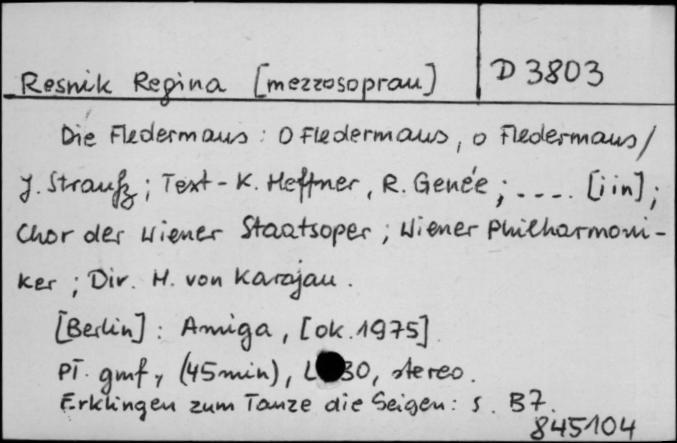 Resnik Regina [mezzosopran]
D 3803
Die Fledermaus : O Fledermaus, o Fledermaus /
J. Strauß ; Text - K. Heffner, R. Genée ; .... [i in] ;
Chor der Wiener Staatsoper ; Wiener Philharmoni-
ker ; Dir. H. von Karajan.
[Berlin] : Amiga, [ok. 1975]
Pł. gmf, (45 min), 30, stereo.
Erklingen zum Tanze die Geigen : s. B7.
845104